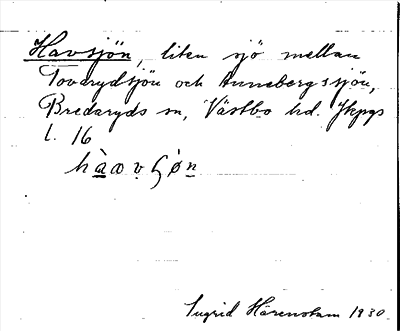 Havsjön, liten sjö mellan
Tovarydsjön och Annebergssjön,
Bredaryds sn, Västbo hd. Jkpgs
l. 16
Ingrid Härenstam 1930